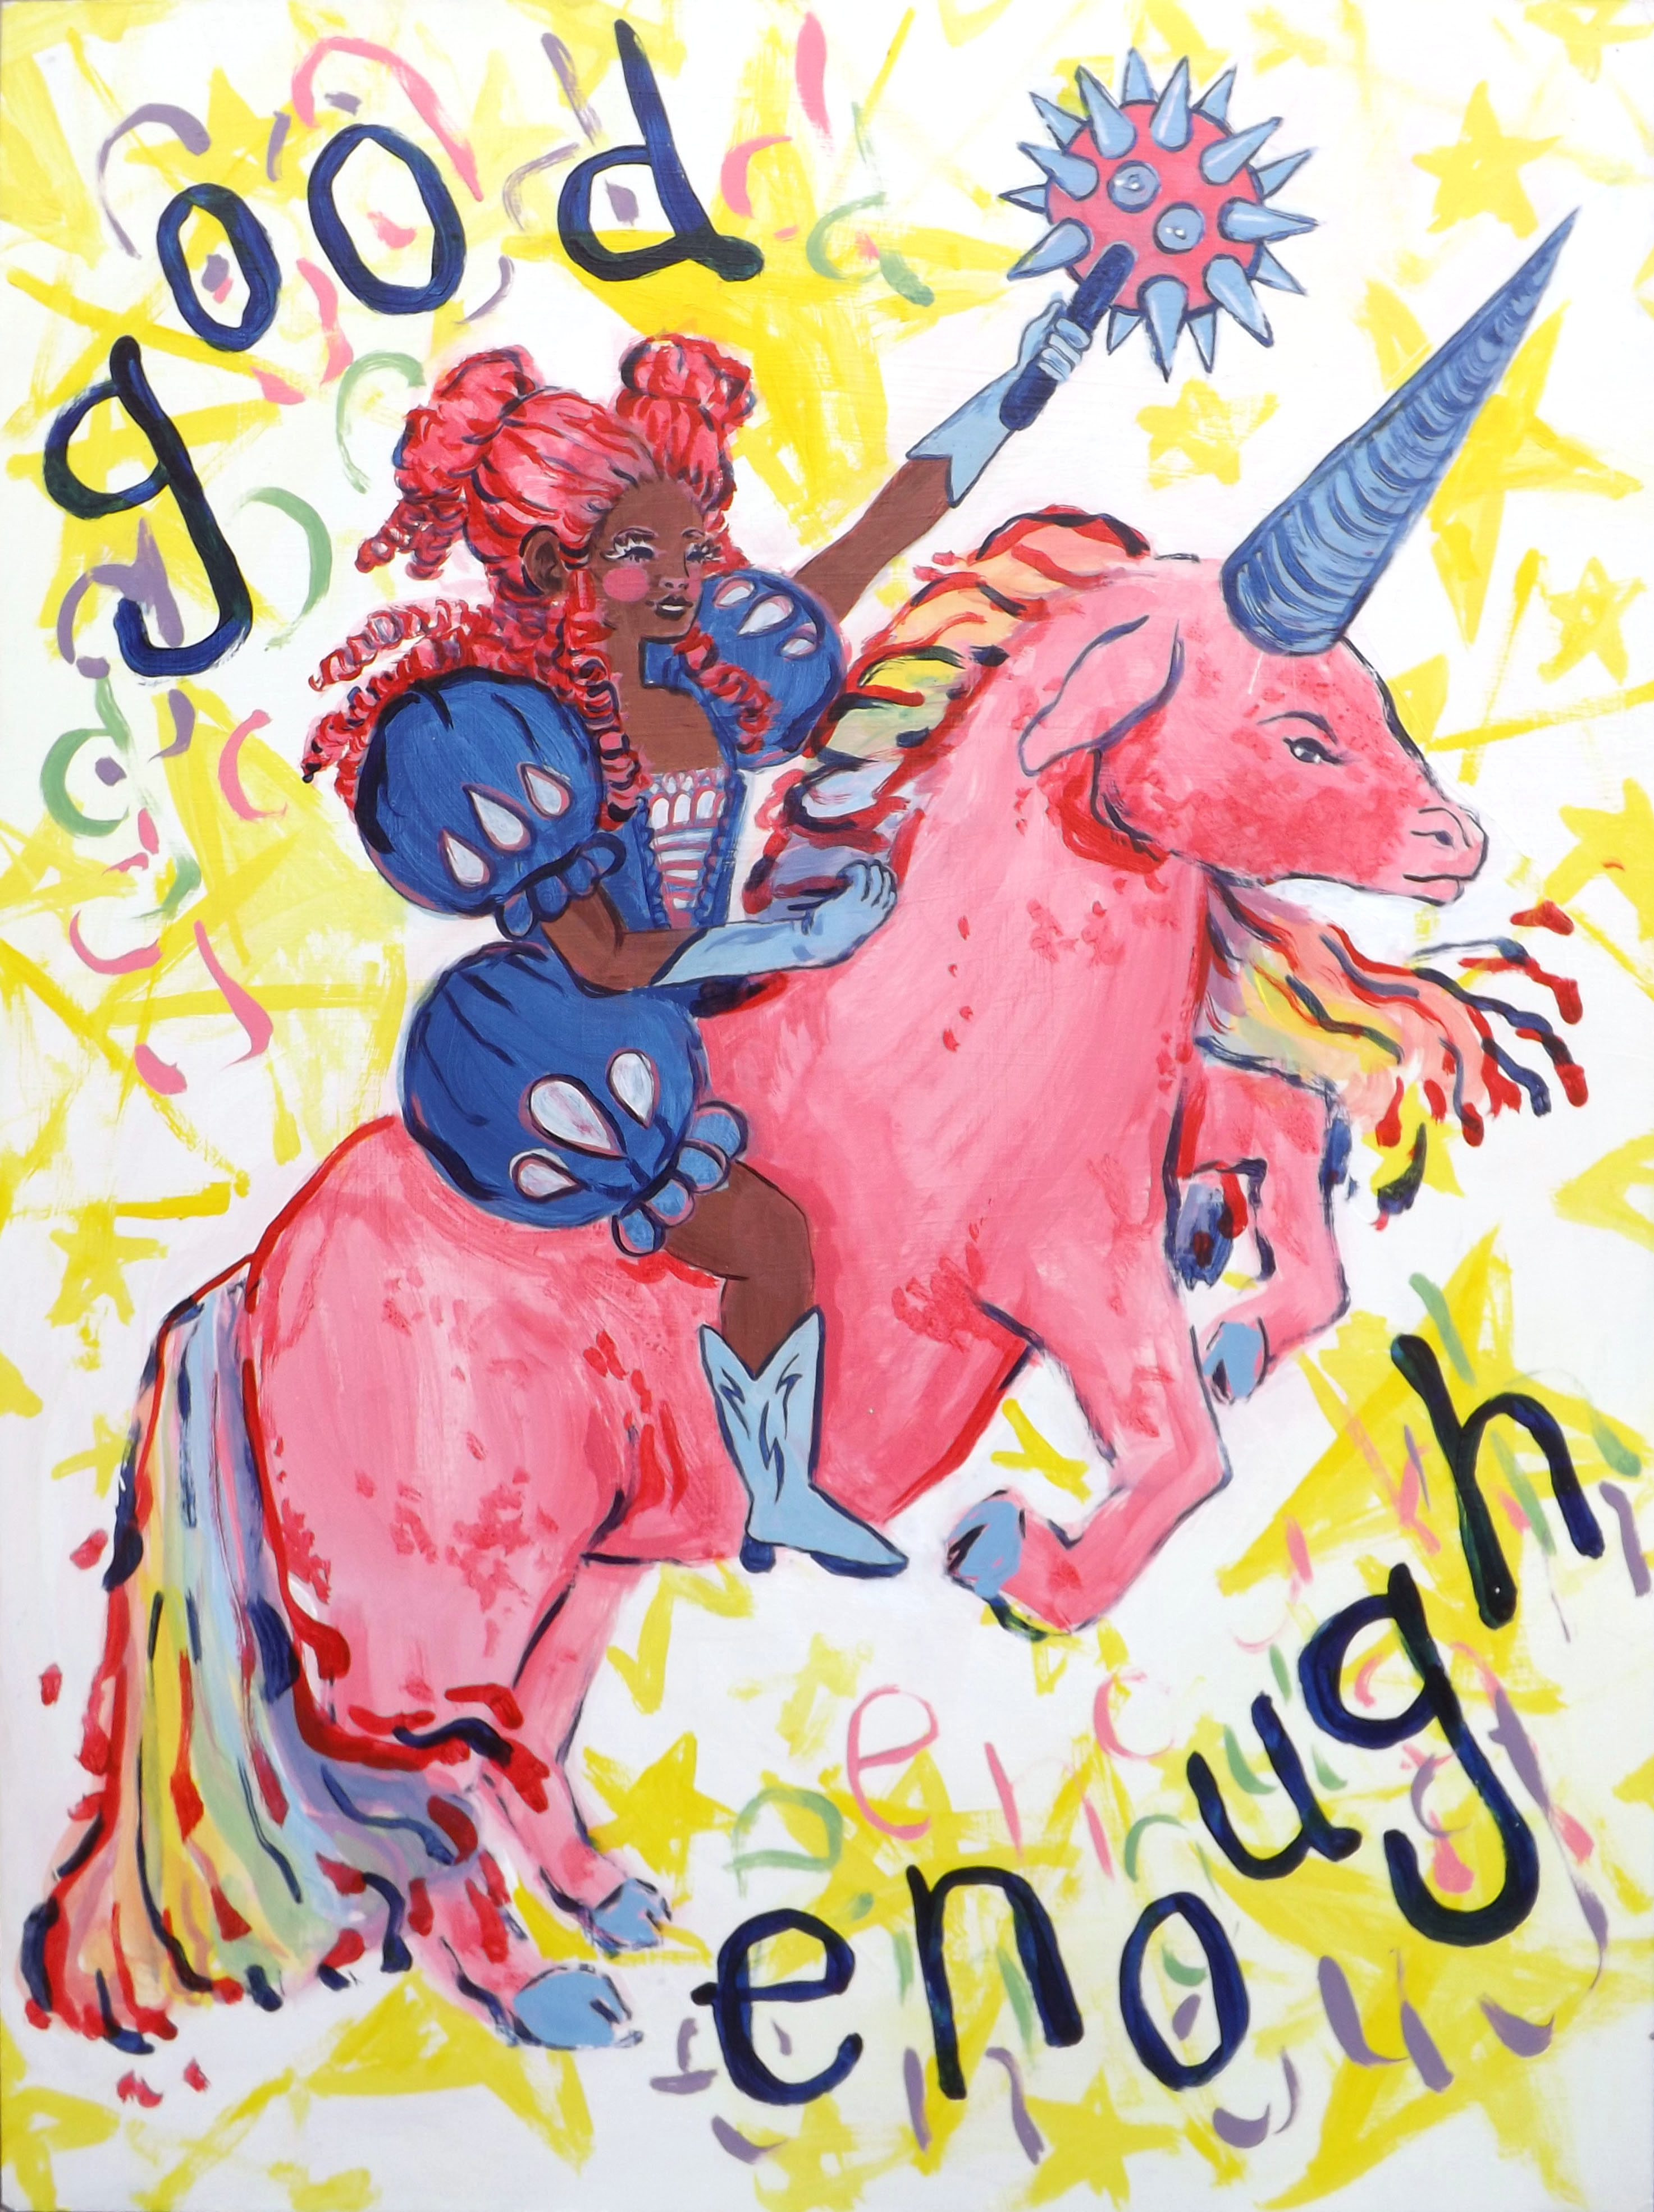 good
enough